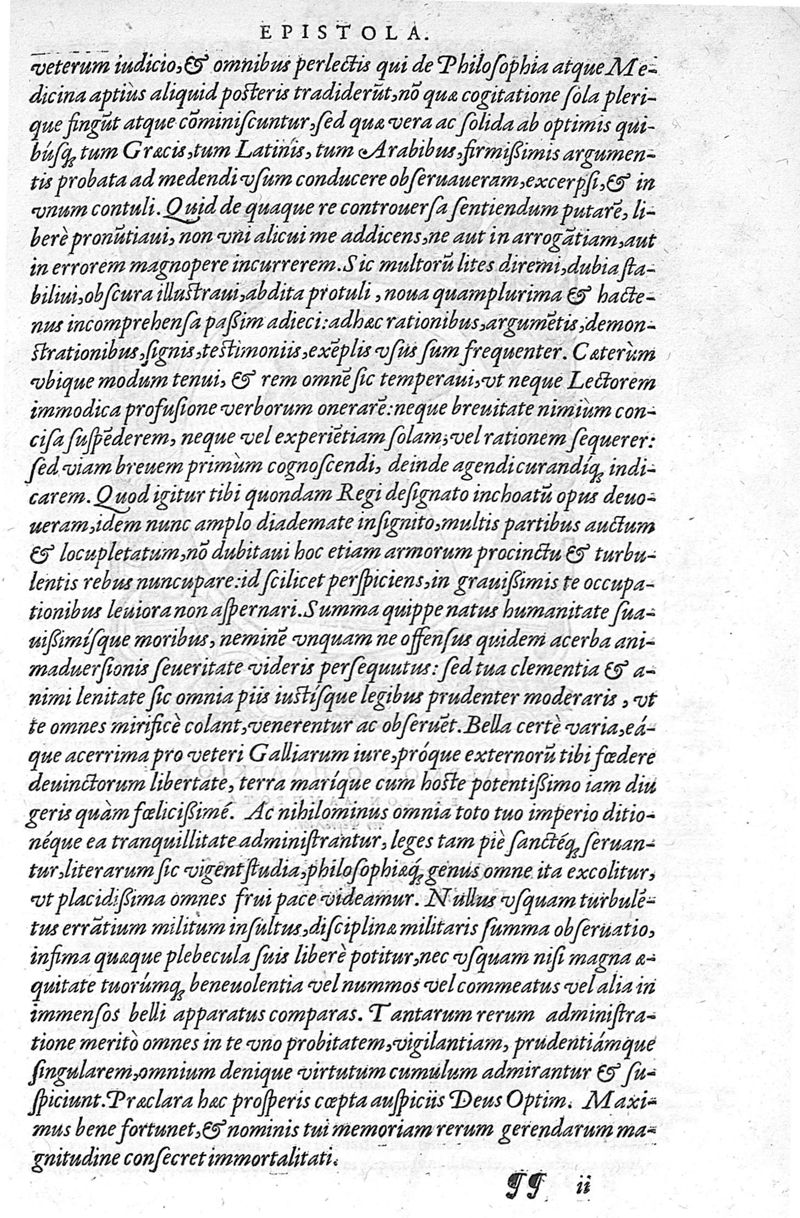 EPISTOLA.
veterum iudicio, & omnibus perlectis qui de Philoſophia atque Me-
dicina aptiùs aliquid poſteris tradiderũt, nõ quæ cogitatione ſola pleri-
que fingũt atque cõminiſcuntur, ſed quæ vera ac ſolida ab optimis qui-
búſq; tum Græcis, tum Latinís, tum Arabibus, firmißimis argumen-
tis probata ad medendi vſum conducere obſeruaueram, excerpſi, & in
vnum contuli. Quid de quaque re controuerſa ſentiendum putarē, li-
berè pronũtiaui, non vni alicui me addicens, ne aut in arrogãtiam, aut
in errorem magnopere incurrerem. Sic multorũ lites diremi, dubia ſta-
biliui, obſcura illuſtraui, abdita protuli, noua quamplurima & hacte-
nus incomprehenſa paßim adieci: adhæc rationibus, argumētis, demon-
ſtrationibus, ſignis, teſtimoniis, exēplis vſus ſum frequenter. Cæterùm
vbique modum tenui, & rem omnē ſic temperaui, vt neque Lectorem
immodica profuſione verborum onerarē: neque breuitate nimiùm con-
ciſa ſuſpēderem, neque vel experiētiam ſolam, vel rationem ſequerer:
ſed viam breuem primùm cognoſcendi, deinde agendi curandiq; indi-
carem. Quod igitur tibi quondam Regi deſignato inchoatũ opus deuo-
ueram, idem nunc amplo diademate inſignito, multis partibus auctum
& locupletatum, nõ dubitaui hoc etiam armorum procinctu & turbu-
lentis rebus nuncupare: id ſcilicet perſpiciens, in grauißimis te occupa-
tionibus leuiora non aſpernari. Summa quippe natus humanitate ſua-
uißimíſque moribus, neminē vnquam ne offenſus quidem acerba ani-
maduerſionis ſeueritate videris perſequutus: ſed tua clementia & a-
nimi lenitate ſic omnia piis iuſtíſque legibus prudenter moderaris, vt
te omnes mirificè colant, venerentur ac obſeruēt. Bella certè varia, eá-
que acerrima pro veteri Galliarum iure, próque externorũ tibi fœdere
deuinctorum libertate, terra maríque cum hoſte potentißimo iam diu
geris quàm fœlicißimé. Ac nihilominus omnia toto tuo imperio ditio-
néque ea tranquillitate adminiſtrantur, leges tam piè ſanctéq; ſeruan-
tur, literarum ſic vigent ſtudia, philoſophiæq; genus omne ita excolitur,
vt placidißima omnes frui pace videamur. Nullus vſquam turbulē-
tus errãtium militum inſultus, diſciplinæ militaris ſumma obſeruatio,
infima quæque plebecula ſuis liberè potitur, nec vſquam niſi magna æ-
quitate tuorúmq; beneuolentia vel nummos vel commeatus vel alia in
immenſos belli apparatus comparas. Tantarum rerum adminiſtra-
tione meritò omnes in te vno probitatem, vigilantiam, prudentiámque
ſingularem, omnium denique virtutum cumulum admirantur & ſu-
ſpiciunt. Præclara hæc proſperis cœpta auſpiciis Deus Optim. Maxi-
mus bene fortunet, & nominis tui memoriam rerum gerendarum ma-
gnitudine conſecret immortalitati.
¶¶ ii